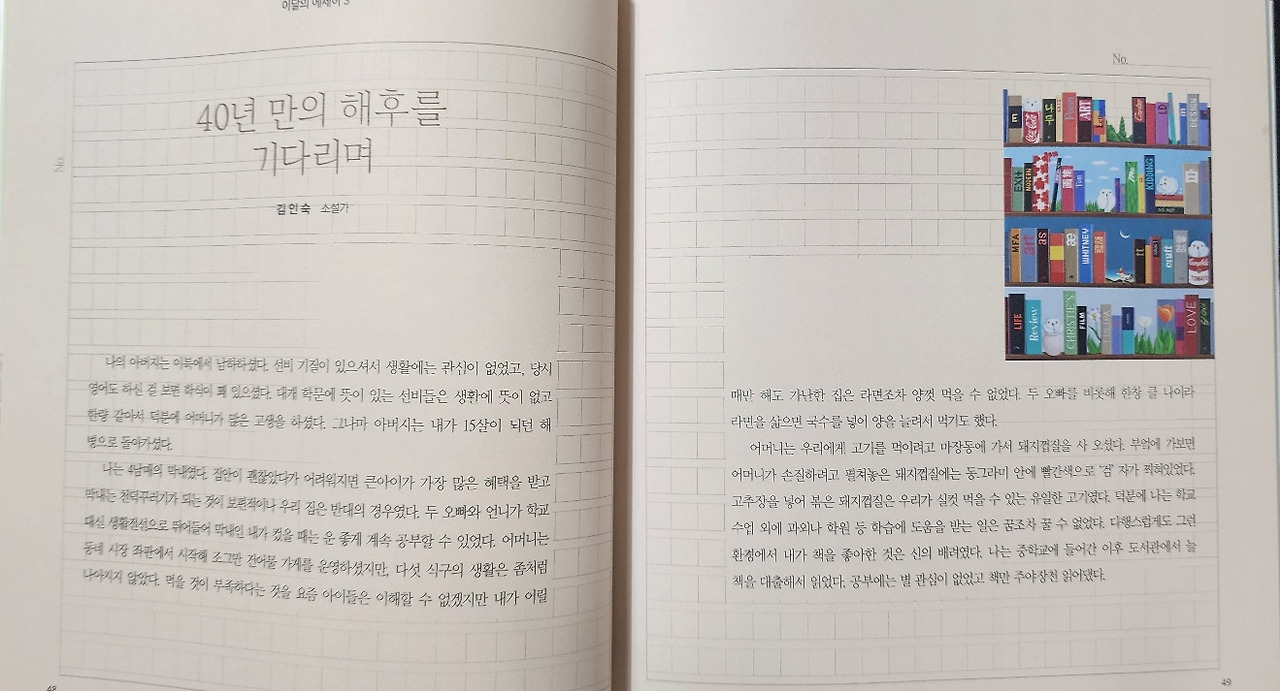 이달의 에세이 3
No.
40년 만의 해후를
기다리며
김인숙 소설가
나의 아버지는 이북에서 남하하셨다. 선비 기질이 있으셔서 생활에는 관심이 없었고, 당시
영어도 하신 걸 보면 학식이 꽤 있으셨다. 대개 학문에 뜻이 있는 선비들은 생활에 뜻이 없고
한량 같아서 덕분에 어머니가 많은 고생을 하셨다. 그나마 아버지는 내가 15살이 되던 해
병으로 돌아가셨다.
나는 4남매의 막내였다. 집안이 괜찮았다가 어려워지면 큰아이가 가장 많은 혜택을 받고
막내는 천덕꾸러기가 되는 것이 보편적이나 우리 집은 반대의 경우였다. 두 오빠와 언니가 학교
대신 생활전선으로 뛰어들어 막내인 내가 컸을 때는 운 좋게 계속 공부할 수 있었다. 어머니는
동네 시장 좌판에서 시작해 조그만 건어물 가게를 운영하셨지만, 다섯 식구의 생활은 좀처럼
나아지지 않았다. 먹을 것이 부족하다는 것을 요즘 아이들은 이해할 수 없겠지만 내가 어릴
48
No.
E
Coca Cola
나무
ART
Garden
LO
DESIGN
EXIT
MODERN
画集
Ton
KIDDING
DO NOT
MFA
art
as
æ
WHITNEY
tt
craft
Campbell's
TOMATO
LIFE
Review
CHRISTIE'S
FILM
LOVE
You
때만 해도 가난한 집은 라면조차 양껏 먹을 수 없었다. 두 오빠를 비롯해 한창 클 나이라
라면을 삶으면 국수를 넣어 양을 늘려서 먹기도 했다.
어머니는 우리에게 고기를 먹이려고 마장동에 가서 돼지껍질을 사 오셨다. 부엌에 가보면
어머니가 손질하려고 펼쳐놓은 돼지껍질에는 동그라미 안에 빨간색으로 '검' 자가 찍혀있었다.
고추장을 넣어 볶은 돼지껍질은 우리가 실컷 먹을 수 있는 유일한 고기였다. 덕분에 나는 학교
수업 외에 과외나 학원 등 학습에 도움을 받는 일은 꿈조차 꿀 수 없었다. 다행스럽게도 그런
환경에서 내가 책을 좋아한 것은 신의 배려였다. 나는 중학교에 들어간 이후 도서관에서 늘
책을 대출해서 읽었다. 공부에는 별 관심이 없었고 책만 주야장천 읽어댔다.
49